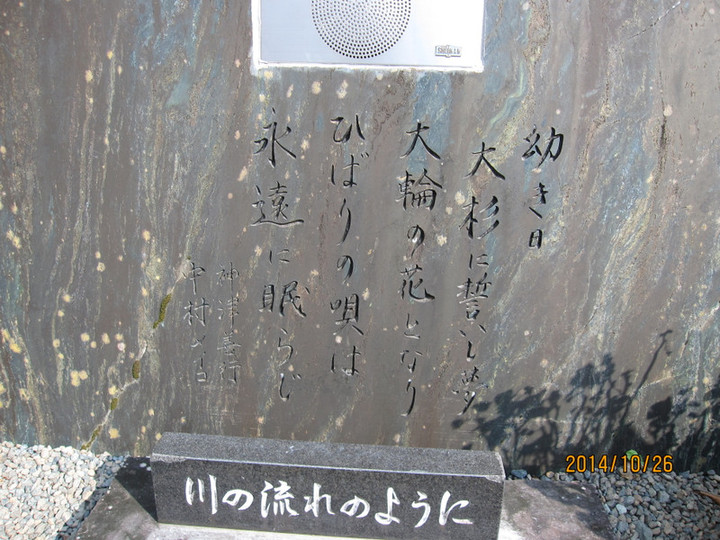 幼き日
大杉に誓いし夢
大輪の花となり
ひばりの唄は
永遠に眠らじ
神津善行
中村メイコ
川の流れのように
2014/10/26